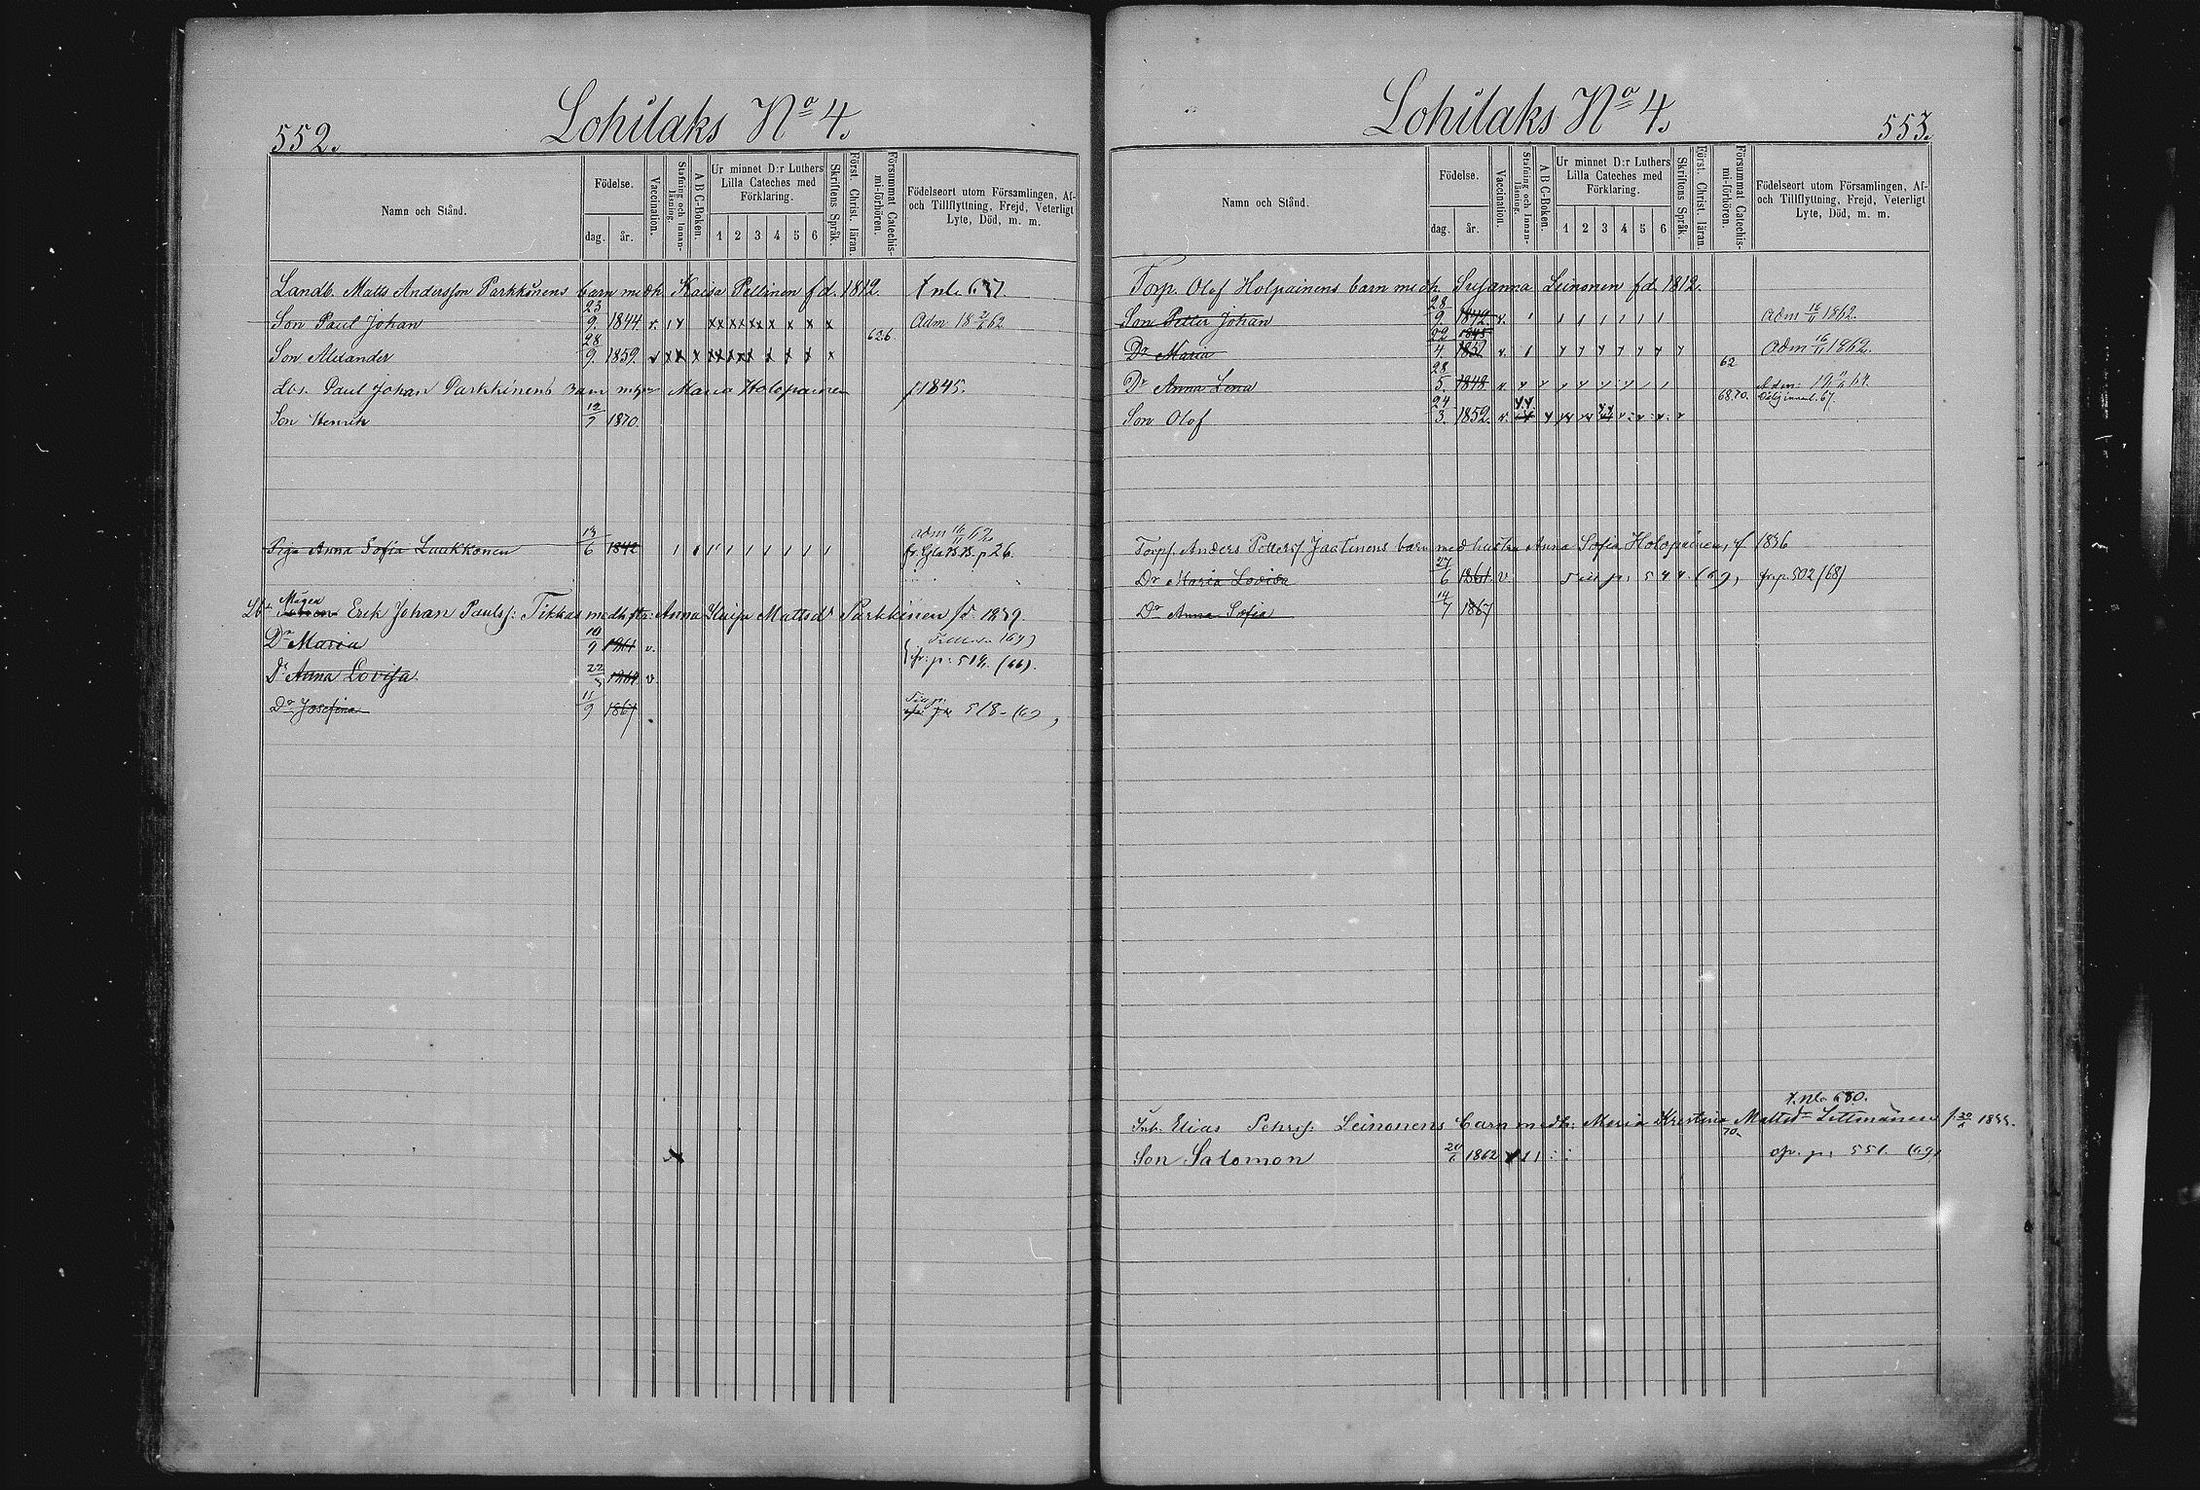 552.
Lohilaks No 4.
Namn och Stånd.
Födelse.
dag.
år.
Vaccination.
Stafning och Innan-läsning
A B C-Boken.
Ur minnet D:r Luthers
Lilla Cateches med
Förklaring.
1 2 3 4 5 6
Skriftens Språk.
Först. Christ. läran.
Försummat Catechis-mi-förhören.
Födelseort utom Församlingen, Af-
och Tillflyttning, Frejd, Veterligt
Lyte, Död, m. m.
Landb. Matts Andersson Parkkonens barn med h. Kaisa Peltinen fd. 1812.
Son Paul Johan 23/9. 1844 v. Adm 18 62
626.
Son Alexander 28/9. 1859. v
Paul Johan Parkkinens Maria Holopainen f. 1845.
Son Henrik 12/7 1870
Piga Anna Sofia Laukkonen 13/6 1842 adm 16/11 62
p 26.
Mågen
Erik Johan Paulss: Tikkas med hstr: Anna Kaisa Mattsdr Parkkinen fd. 1839.
Dr Maria 10/9 1861 v.
fr. p: 519. (66).
Dr Anna Lovisa 22 1864 v
Dr Josefina 11/9 1867 518 - (69)
Lohilaks No 4.
553.
Namn och Stånd.
Födelse.
dag.
år.
Vaccination.
Stafning och Innan-läsning.
A B C-Boken.
Ur minnet D:r Luthers
Lilla Cateches med
Förklaring.
1 2 3 4 5 6
Skriftens Språk.
Först. Christ. läran.
Försummat Catechis-mi-förhören.
Födelseort utom Församlingen, Af-
och Tillflyttning, Frejd, Veterligt
Lyte, Död, m. m.
Torp. Olof Holpainens barn med h. Susanna Leinonen fd. 1812.
Son Petter Johan 28/9 1842 v. Adm 16/11 1862.
Dr Maria 22/4. 1845 v. Adm 16/11 1862.
62
Dr Anna Lena 28/5. 1848 v. Adm: 64.
68.70.
Son Olof 24/3. 1852. v.
Torp. Anders Petterss. Jaatinens barn med hustru Anna Sofia Holopainen, f 1836
Dr Maria Lovisa 27/6 1861 v p: 544. (69), fr. p. 502 (68)
Dr Anna Sofia 19/7 1867
f. nl. 680.
Inh. Elias Pehrss: Leinonens barn med h: Maria Kristina Mattsdr f. 1833.
70.
Son Salomon 20/6 1862 fr. p: 551. (69)